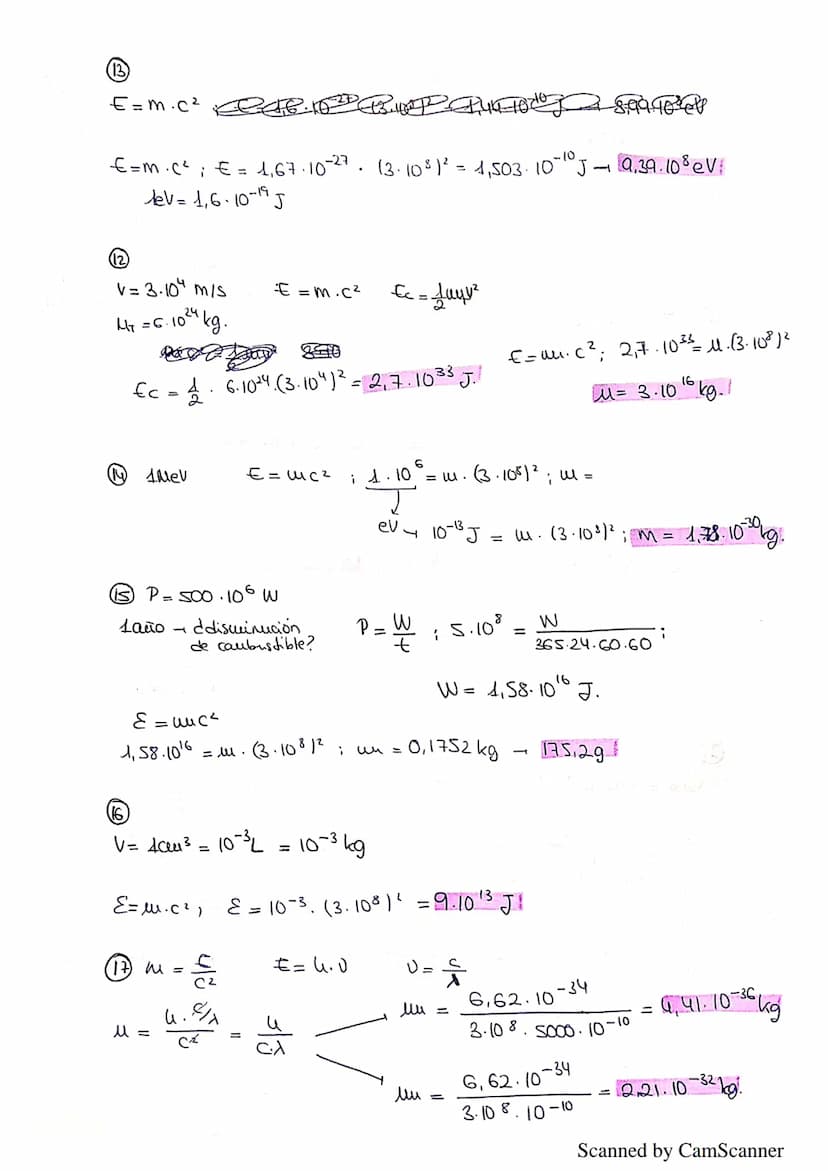 13
E = m·c²
E = m·c² ; E = 1,67·10⁻²⁷ · (3·10⁸)² = 1,503·10⁻¹⁰ J → 9,39·10⁸ eV.
1eV = 1,6·10⁻¹⁹ J
12
V = 3·10⁴ m/s E = m·c² Ec = 1/2 m·v²
MT = 6·10²⁴ kg.
E = m·c² ; 2,7·10³³ = m·(3·10⁸)²
Ec = 1/2 · 6·10²⁴·(3·10⁴)² = 2,7·10³³ J. m = 3·10¹⁶ kg.
14 1MeV E = mc² ; 1·10⁶ = m·(3·10⁸)² ; m =
eV → 10⁻¹³ J = m·(3·10⁸)² ; m = 1,78·10⁻³⁰ kg.
15 P = 500·10⁶ W
1 año → ¿disminución de combustible? P = W/t ; 5·10⁸ = W/365·24·60·60 ;
W = 1,58·10¹⁶ J.
E = mc²
1,58·10¹⁶ = m·(3·10⁸)² ; m = 0,1752 kg → 175,2g
16
V = 1cm³ = 10⁻³L = 10⁻³ kg
E = m·c² ; E = 10⁻³·(3·10⁸)² = 9·10¹³ J
17 m = E/c² E = h·υ υ = c/λ
m = h·c/λ / c² = h/c·λ
m = 6,62·10⁻³⁴ / 3·10⁸·5000·10⁻¹⁰ = 4,41·10⁻³⁶ kg
m = 6,62·10⁻³⁴ / 3·10⁸·10⁻¹⁰ = 2,21·10⁻³² kg.
Scanned by CamScanner